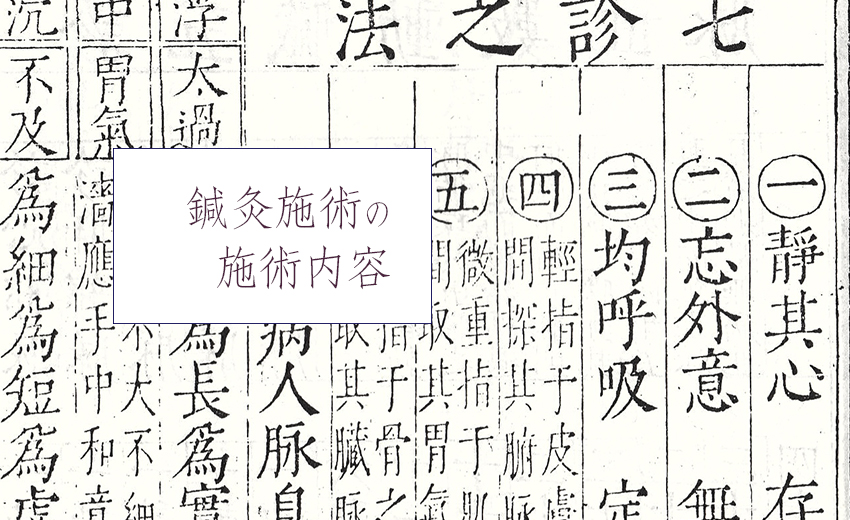 鍼灸施術の
施術内容
七診之法
㊀靜其心 存
㊁忘外意 無
㊂均呼吸 定
㊃輕指于皮膚
間探其腑脈
㊄微重指于肌
間取其胃氣
指于骨之
取其臟脈
病人脈息
浮
太過
為長為實
中
胃氣
不大不細
應手中和意
沉
不及
為細為短為虛